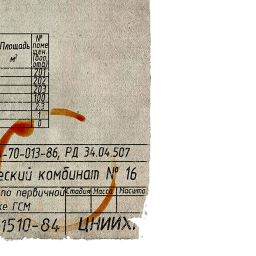 Площадь м²
№ поме щен.
201
202
203
100
2,3
1
0
-70-013-86, РД 34.04.507
еский комбинат № 16
по первичной Стадия Масса Масшта
ке ГСМ
1510-84 ЦНИИХ.